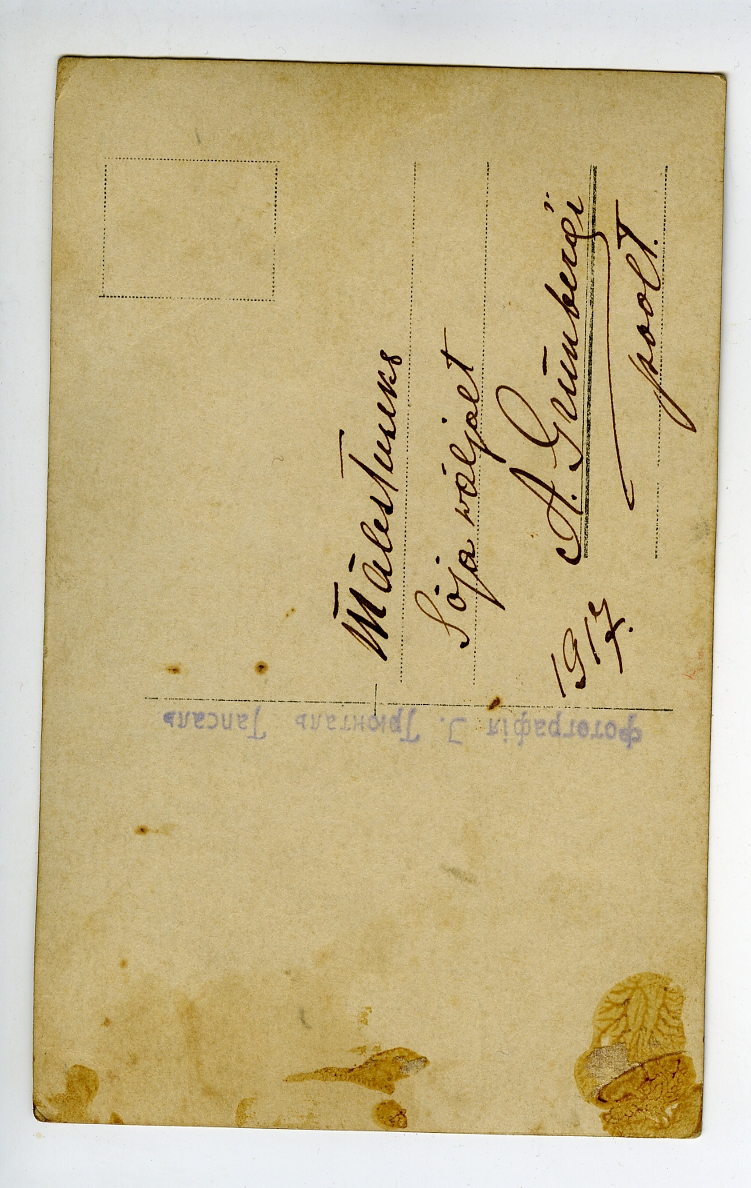 Mälestuseks
Sõja wäljalt
A. Grünbergi
poolt.
1917.
Фотографія I. Грюнталь Гапсаль